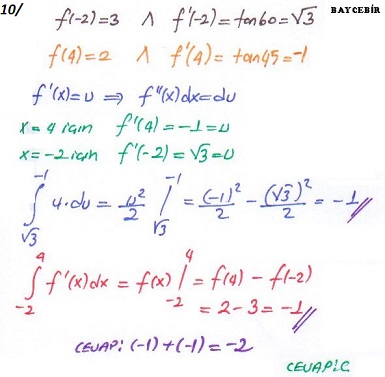 10/ BAYCEBİR
f(-2)=3 ∧ f'(-2)=tan60=√3
f(4)=2 ∧ f'(4)=tan45=-1
f'(x)=u ⇒ f''(x)dx=du
x=4 için f'(4)=-1=u
x=-2 için f'(-2)=√3=u
∫_{√3}^{-1} u.du = u²/2 |_{√3}^{-1} = (-1)²/2 - (√3)²/2 = -1 //
∫_{-2}^{4} f'(x)dx = f(x) |_{-2}^{4} = f(4) - f(-2)
= 2-3 = -1 //
CEVAP: (-1)+(-1)=-2
CEVAP: C